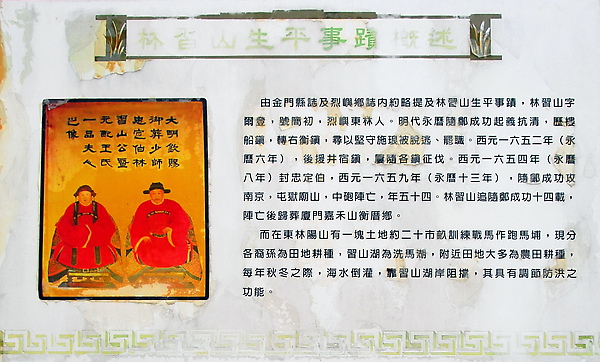 林習山生平事蹟概述
大明欽賜
御葬少師
忠定伯林
習山公暨
元配王氏
一品夫人
之像
由金門縣誌及烈嶼鄉誌內約略提及林習山生平事蹟，林習山字
爾登，號簡初，烈嶼東林人。明代永曆隨鄭成功起義抗清，歷樓
船鎮，轉右衝鎮，尋以堅守施琅被脫逃、罷職。西元一六五二年（永
曆六年），後援井宿鎮，屢隨各鎮征伐。西元一六五四年（永曆
八年）封忠定伯，西元一六五九年（永曆十三年），隨鄭成功攻
南京，屯獄廟山，中砲陣亡，年五十四。林習山追隨鄭成功十四載，
陣亡後歸葬廈門嘉禾山衡厝鄉。
而在東林陽山有一塊土地約二十市畝訓練戰馬作跑馬埔，現分
各裔孫為田地耕種，習山湖為洗馬湖，附近田地大多為農田耕種，
每年秋冬之際，海水倒灌，靠習山湖岸阻擋，其具有調節防洪之
功能。